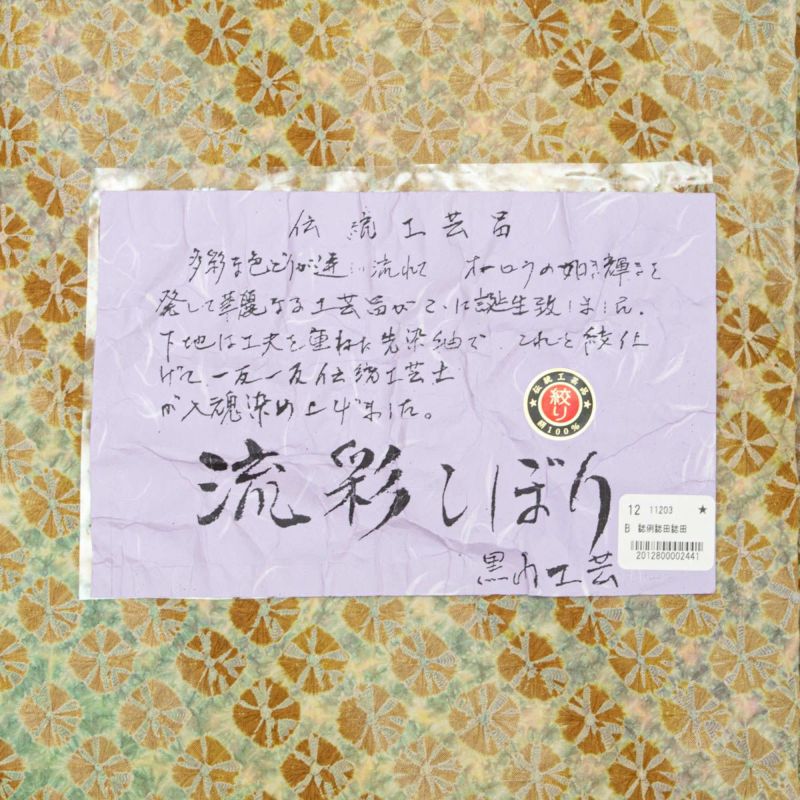 伝統工芸品
多彩な色どりが逆い流れて オーロラの如き輝きを
発して華麗なる工芸品がここに誕生致しました。
下地は工夫を重ねた先染紬で、これを絞仕
げて、一反一反伝統工芸士
が入魂染め上げました。
★伝統工芸品★
絞り
絹100%
流彩しぼり
12 11203 ★
B
2012800002441
工芸